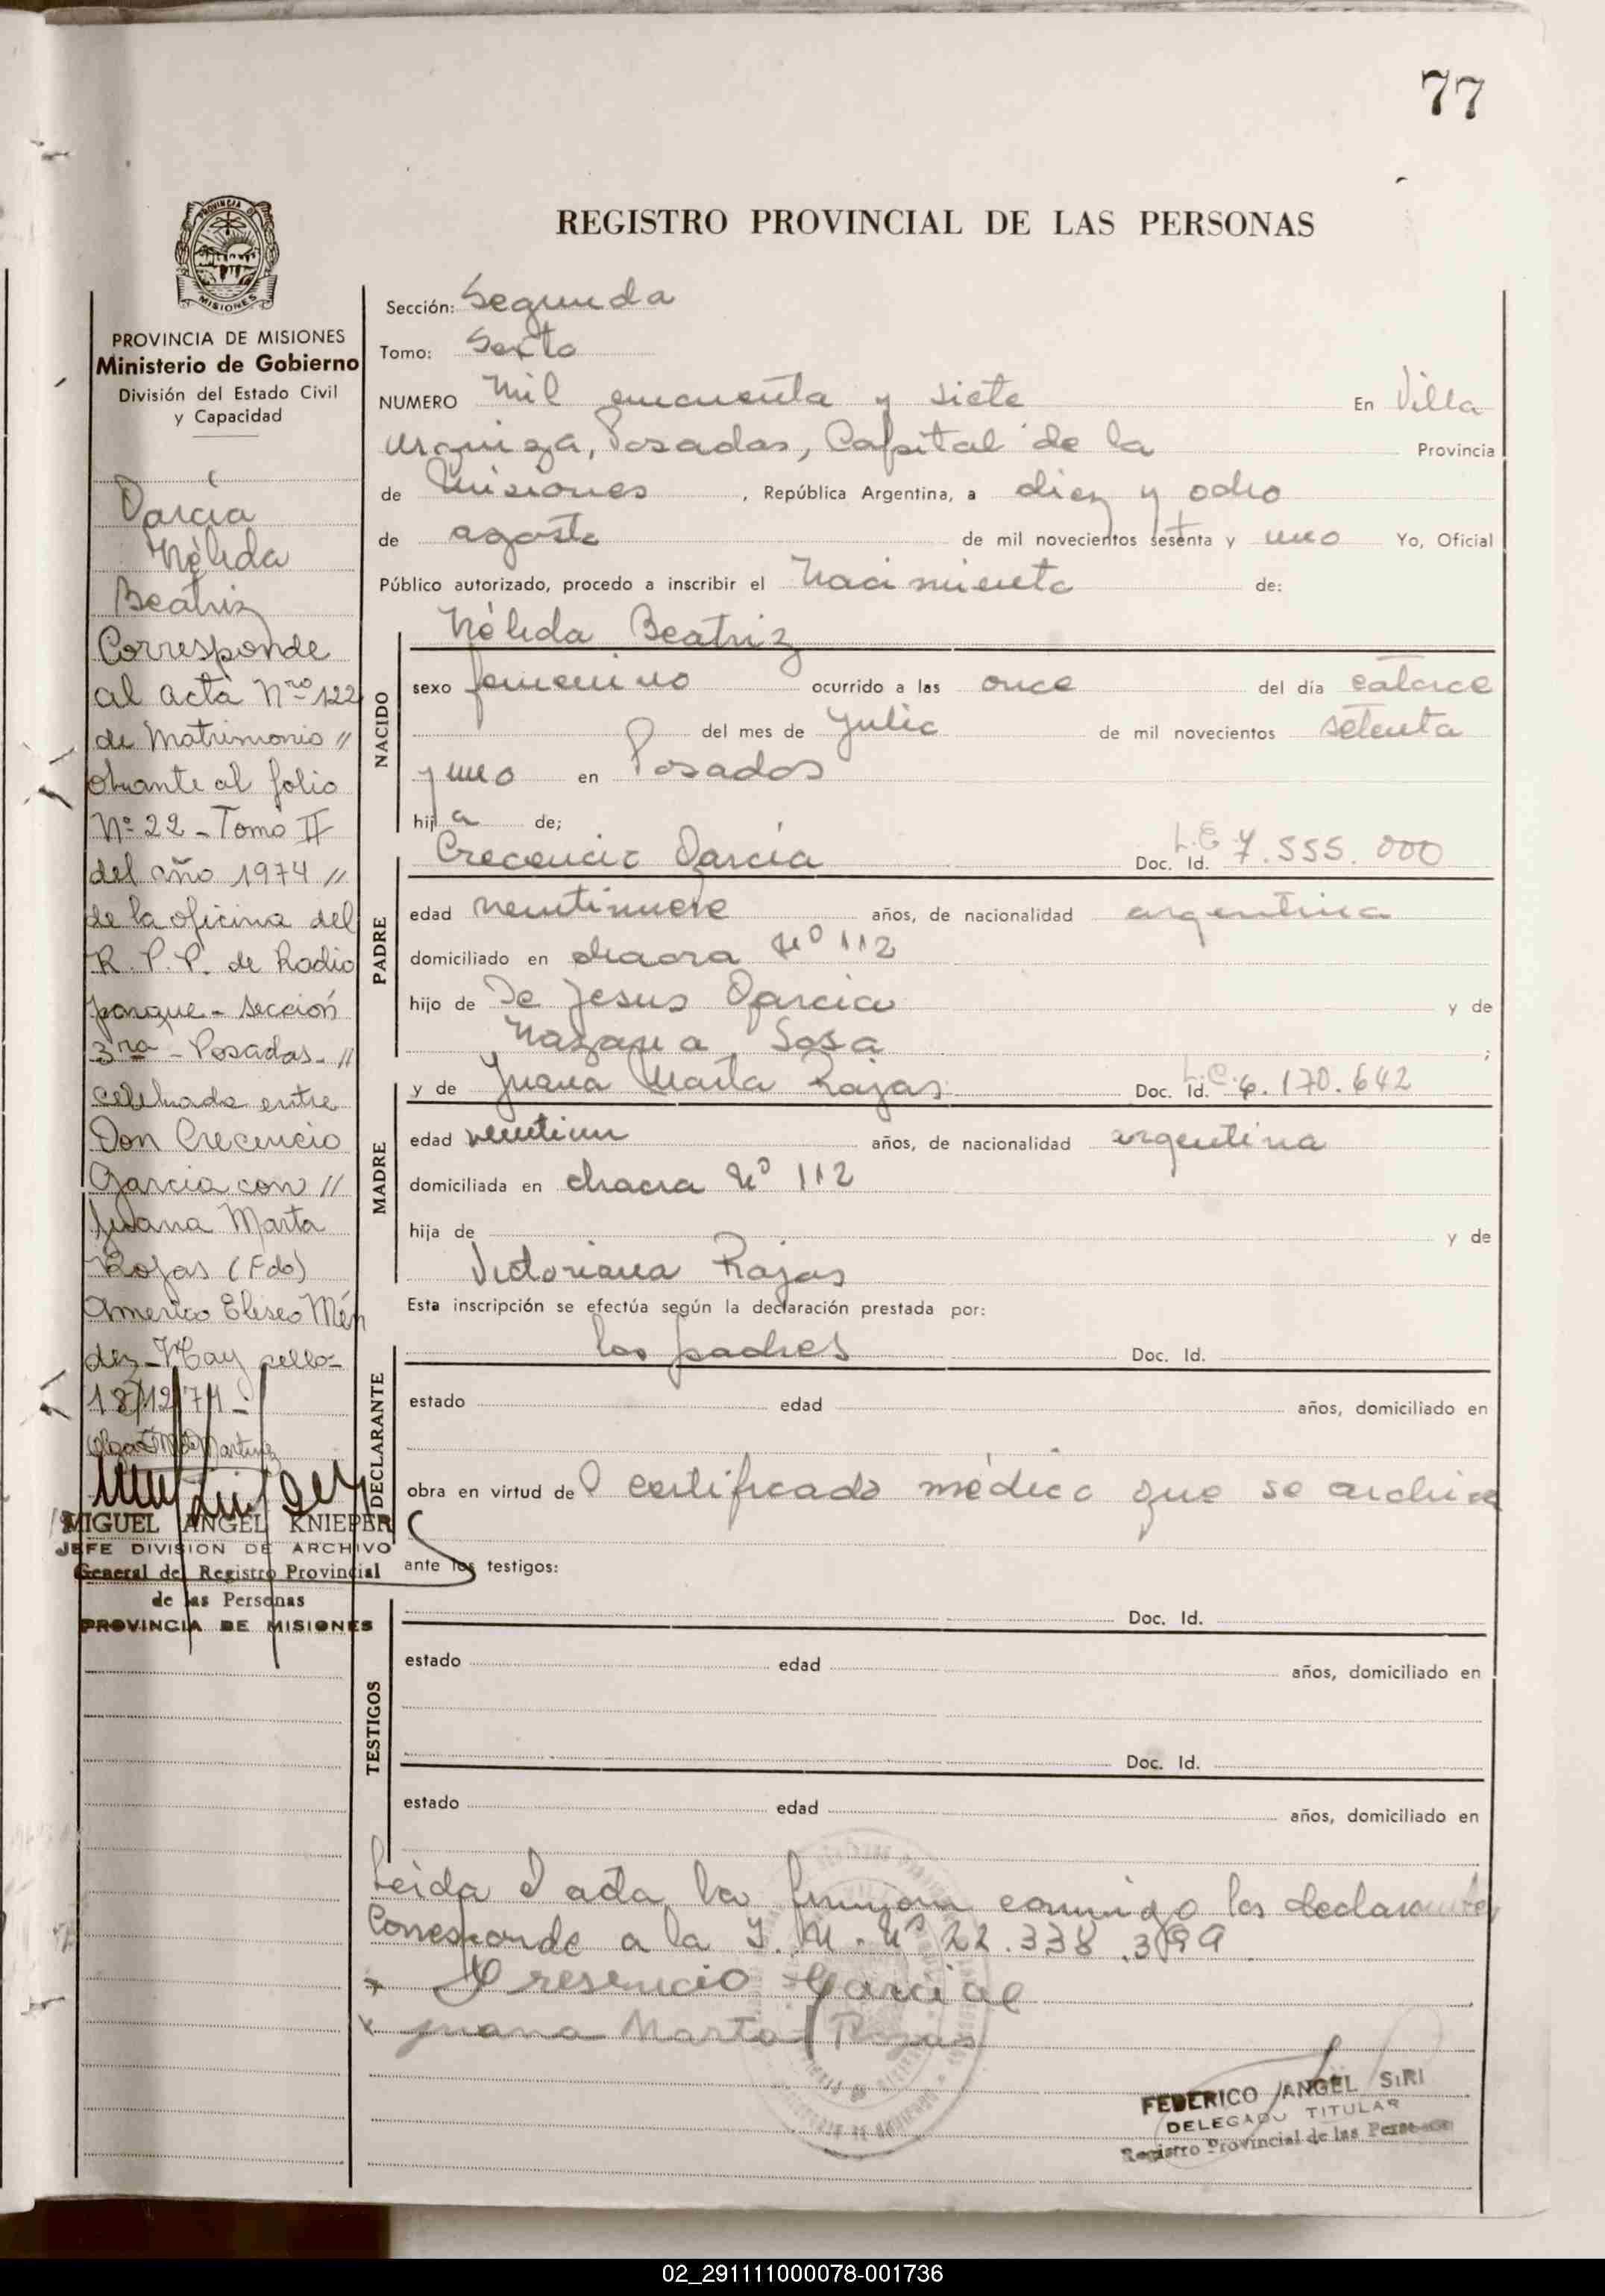 77
REGISTRO PROVINCIAL DE LAS PERSONAS
PROVINCIA DE MISIONES
MISIONES
PROVINCIA DE MISIONES
Ministerio de Gobierno
División del Estado Civil
y Capacidad
García
Nélida
Beatriz
Corresponde
al acta Nro 122
de Matrimonio //
obrante al folio
Nº 22 - Tomo II
del año 1974 //
de la oficina del
R. P. P. de Radio
parque - sección
3ra - Posadas - //
celebrada entre
Don Crecencio
Garcia con //
Juana Marta
Rojas (Fdo)
Americo Eliseo Mén
dez - Hay sello -
18/12/74 -
MIGUEL ANGEL KNIEPER
JEFE DIVISION DE ARCHIVO
General del Registro Provincial
de las Personas
PROVINCIA DE MISIONES
Sección: Segunda
Tomo: Sexto
NUMERO Mil cincuenta y siete En Villa
Urquiza, Posadas, Capital de la Provincia
de Misiones , República Argentina, a diez y ocho
de agosto de mil novecientos sesenta y uno Yo, Oficial
Público autorizado, procedo a inscribir el Nacimiento de:
NACIDO
Nélida Beatriz
sexo femenino ocurrido a las once del día catorce
del mes de Julio de mil novecientos setenta
y uno en Posadas
hija de;
PADRE
Crecencio García Doc. Id. L.E 7.555.000
edad veintinueve años, de nacionalidad argentina
domiciliado en chacra Nº 112
hijo de De Jesus Garcia y de
Nazaria Sosa ;
MADRE
y de Juana Marta Rojas Doc. Id. L.C. 6.170.642
edad veintiun años, de nacionalidad argentina
domiciliada en chacra Nº 112
hija de y de
Victoriana Rojas
Esta inscripción se efectúa según la declaración prestada por:
DECLARANTE
los padres Doc. Id.
estado edad años, domiciliado en
obra en virtud del certificado médico que se archiva
ante los testigos:
TESTIGOS
Doc. Id.
estado edad años, domiciliado en
Doc. Id.
estado edad años, domiciliado en
Leida el acta la firman conmigo los declarantes
Corresponde a la I. M. Nº 22.338.399
x Cresencio Garcia
x Juana Marta Rojas
FEDERICO ANGEL SIRI
DELEGADO TITULAR
Registro Provincial de las Personas
02_291111000078-001736